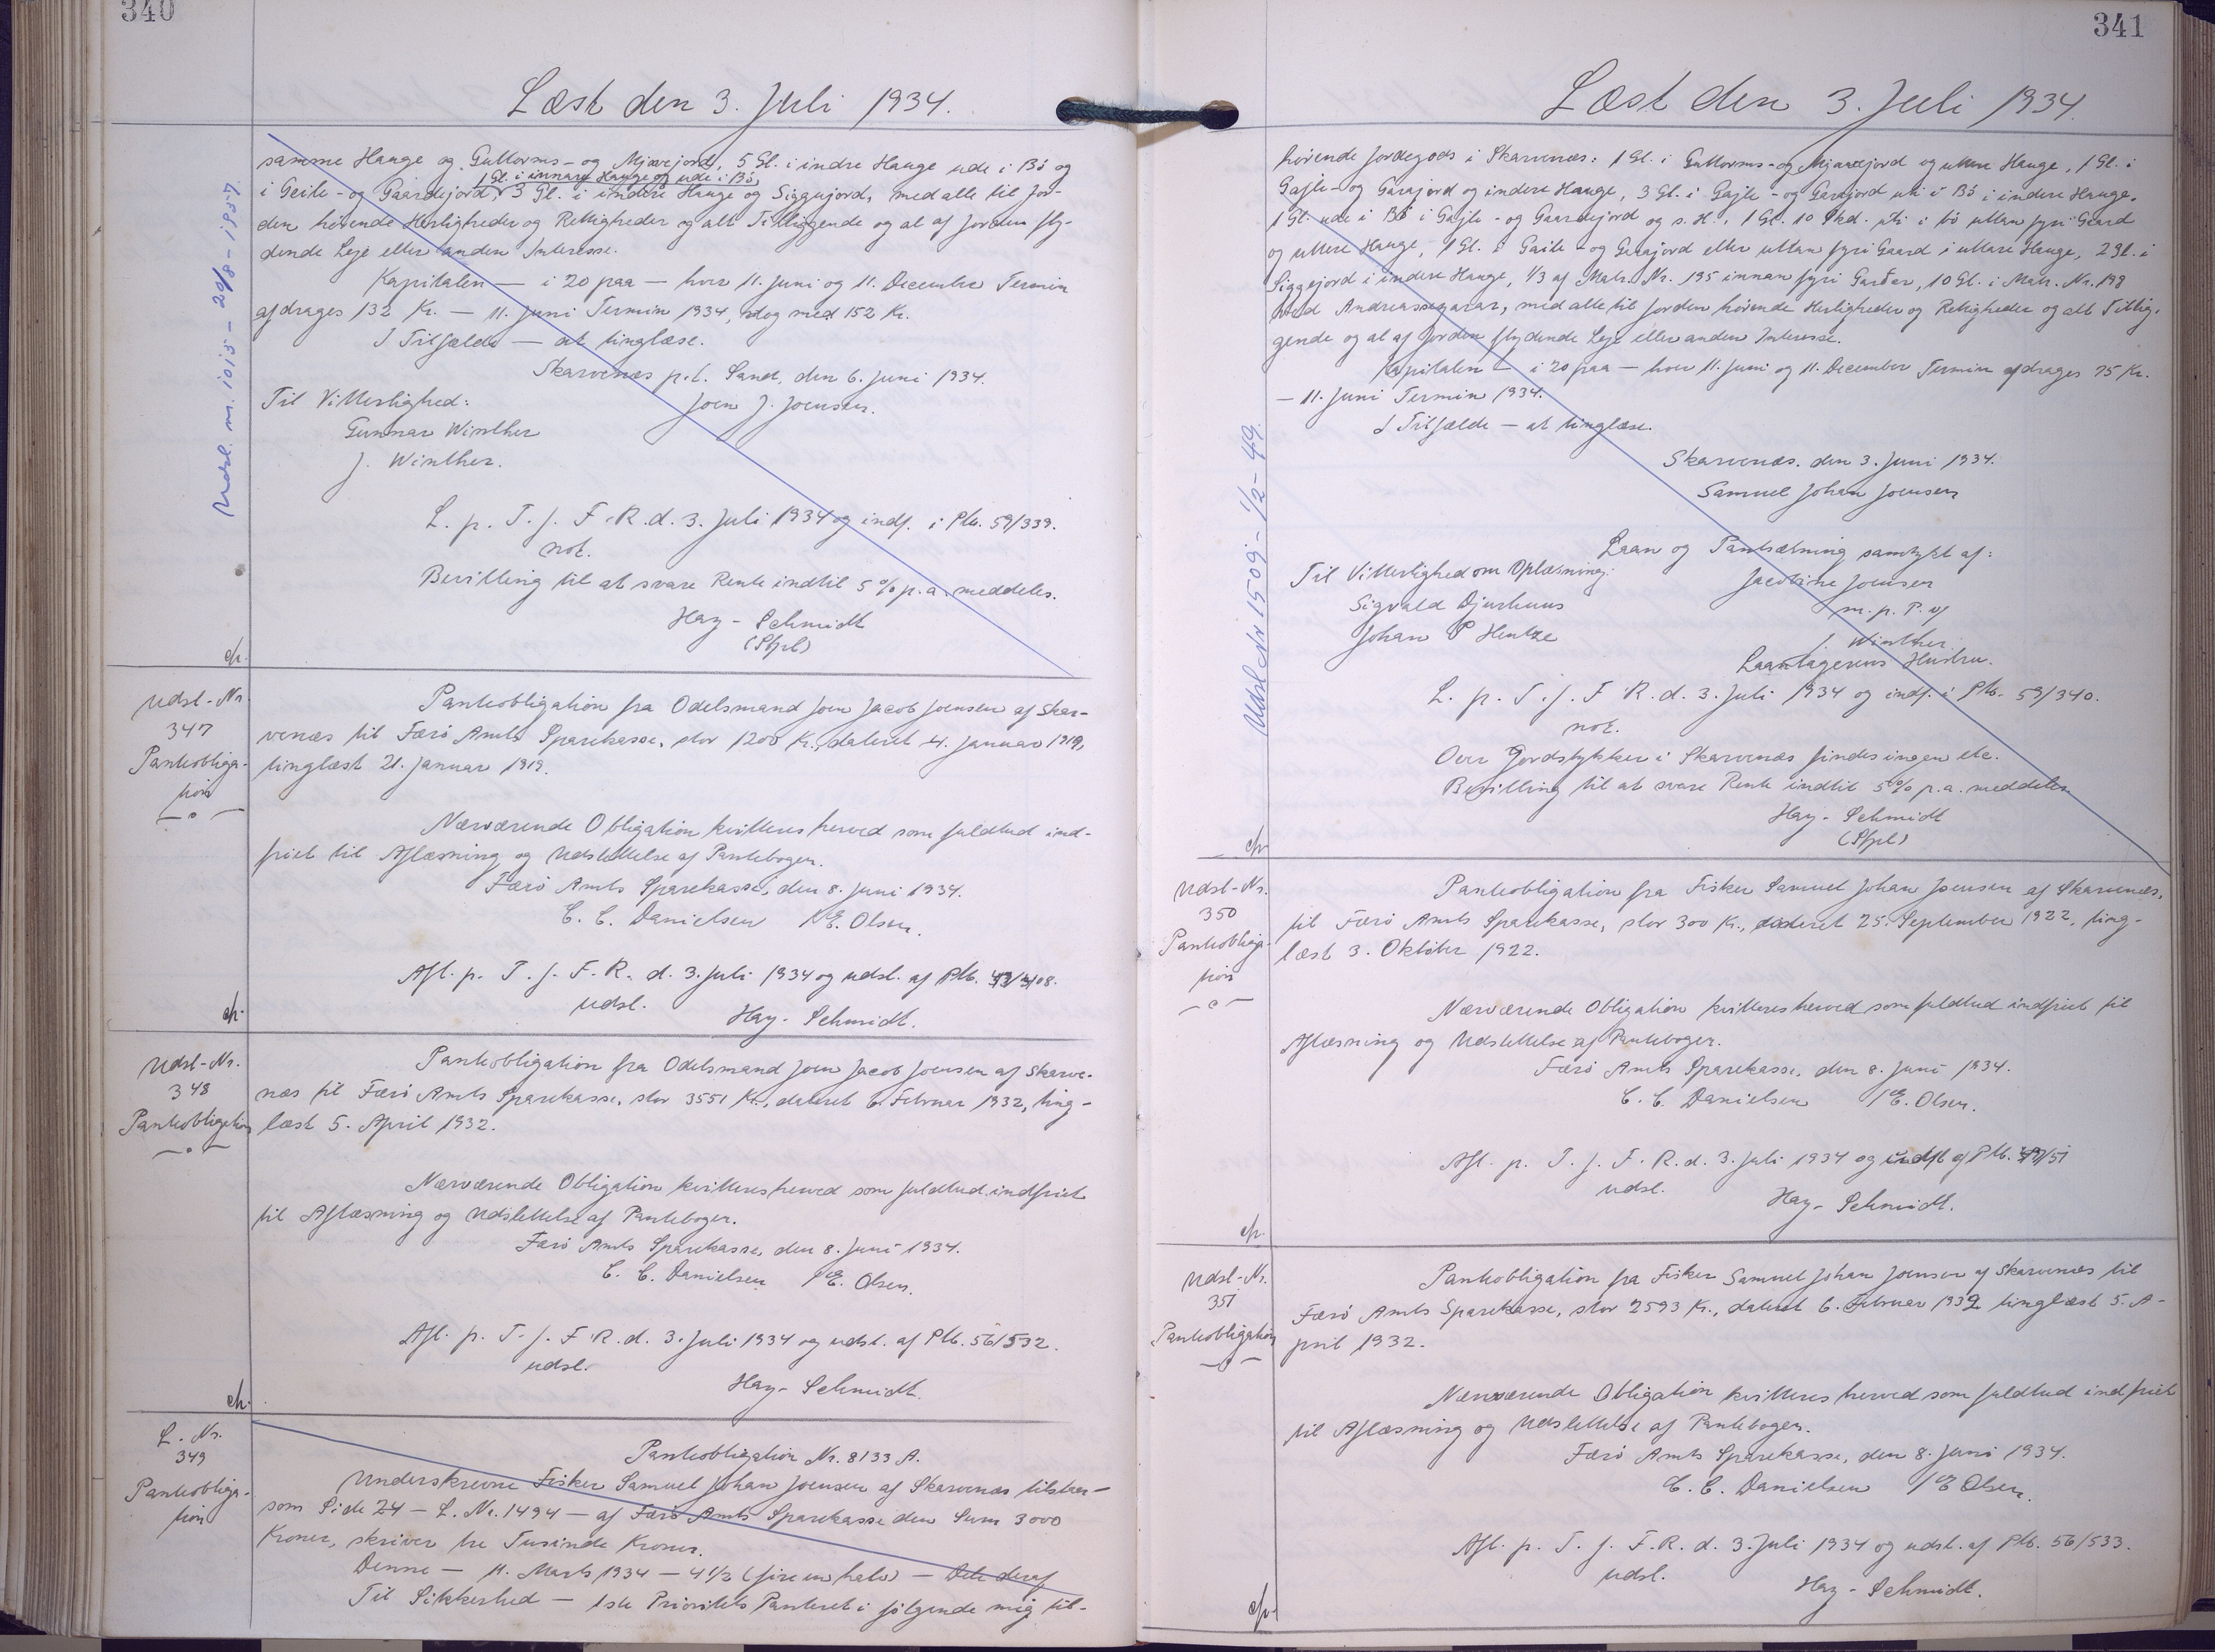 340
Læst den 3. Juli 1934.
samme Hauge og Guttorms- og Mjavejord, 5 Gl. i indre Hauge ude i Bö og
1 Gl. i innara Hauge og ude i Bö,
i Geile- og Gaardejord, 3 Gl. i indere Hauge og Siggujord, med alle til Jor-
den hörende Herligheder og Rettigheder og alt Tilliggende og al af Jorden fly-
dende Leje eller anden Interesse.
Kapitalen — i 20 paa — hver 11. Juni og 11. December Termin
afdrages 132 Kr. — 11. Juni Termin 1934, dog med 152 Kr.
I Tilfælde — at tinglæse.
Skarvenæs p.t. Sand, den 6. Juni 1934.
Til Vitterlighed:
Joen J. Joensen.
Gunnar Winther
J. Winther.
L. p. T. f. F. R. d. 3. Juli 1934 og indf. i Ptb. 59/339.
not.
Bevilling til at svare Rente indtil 5 % p.a. meddeles.
Hay-Schmidt
(Stpl)
Udsl. nr. 1015 - 20/8 - 1957
Udsl-Nr.
347
Panteobliga-
tion
Panteobligation fra Odelsmand Joen Jacob Joensen af Skar-
venæs til Færö Amts Sparekasse, stor 1200 Kr., dateret 4. Januar 1919,
tinglæst 21. Januar 1919.
Nærværende Obligation kvitteres herved som fuldtud ind-
friet til Aflæsning og Udslettelse af Pantebogen.
Færö Amts Sparekasse, den 8. Juni 1934.
C. C. Danielsen / E. Olsen.
Afl. p. T. f. F. R. d. 3. Juli 1934 og udsl. af Ptb.
udsl.
Hay-Schmidt.
Udsl-Nr.
348
Panteobligation
Panteobligation fra Odelsmand Joen Jacob Joensen af Skarve-
næs til Færö Amts Sparekasse, stor 3551 Kr., dateret 6. Februar 1932, ting-
læst 5. April 1932.
Nærværende Obligation kvitteres herved som fuldtud indfriet
til Aflæsning og Udslettelse af Pantebogen.
Færö Amts Sparekasse, den 8. Juni 1934.
C. C. Danielsen / E. Olsen.
Afl. p. T. f. F. R. d. 3. Juli 1934 og udsl. af Ptb. 56/532.
udsl.
Hay-Schmidt.
L. Nr.
349
Panteobliga-
tion
Panteobligation Nr. 8133 A.
Underskrevne Fisker Samuel Johan Joensen af Skarvenæs tilstaar —
som Side 24 — L. Nr. 1494 — af Færö Amts Sparekasse den Sum 3000
Kroner, skriver tre Tusinde Kroner.
Denne — 11. Marts 1934 — 4 1/2 (fire en halv) — Dele deraf
Til Sikkerhed — 1ste Prioritets Panteret i fölgende mig til-
341
Læst den 3. Juli 1934.
hörende Jordegods i Skarvenæs: 1 Gl. i Guttorms- og Mjavejord og uttere Hauge, 1 Gl. i
Gajle- og Garajord og indere Hauge, 3 Gl. i Gajle- og Gerajord uti i Bö i indere Hauge.
1 Gl. ude i Bö i Gajle- og Gaardejord og s. H., 1 Gl. 10 Skd. uti i bö uttan fyri Gaard
og uttere Hauge, 1 Gl. i Gaile- og Gerajord eller uttan fyri Gaard i uttare Hauge, 2 Gl. i
Siggejord i indere Hauge, 1/3 af Matr. Nr. 195 innan fyri Garðar, 10 Gl. i Matr. Nr. 198
Andreassagarar, med alle til Jorden hörende Herligheder og Rettigheder og alt Tillig-
gende og al af Jorden flydende Leje eller anden Interesse.
Kapitalen — i 20 paa — hver 11. Juni og 11. December Termin afdrages 75 Kr.
— 11. Juni Termin 1934.
I Tilfælde — at tinglæse.
Skarvenæs. den 3. Juni 1934.
Samuel Johan Joensen
Laan og Pantsætning samtykt af:
Til Vitterlighed om Oplæsning:
Jacobine Joensen
Sigvald Djurhuus
m. p. P. v/
Johan P Hentze
J. Winther
Laantagerens Hustru.
L. p. T. f. F. R. d. 3. Juli 1934 og indf. i Ptb. 59/340.
not.
Over Jordstykker i Skarvenæs findes ingen etc.
Bevilling til at svare Rente indtil 5% p.a. meddeles
Hay-Schmidt
(Stpl)
Udsl. Nr 1509 - 1/2 - 49.
Udsl-Nr.
350
Panteobliga-
tion
Panteobligation fra Fisker Samuel Johan Joensen af Skarvenæs,
til Færö Amts Sparekasse, stor 300 Kr., dateret 25. September 1922, ting-
læst 3. Oktober 1922.
Nærværende Obligation kvitteres herved som fuldtud indfriet til
Aflæsning og Udslettelse af Pantebogen.
Færö Amts Sparekasse, den 8. Juni 1934.
C. C. Danielsen / E. Olsen.
Afl. p. T. f. F. R. d. 3. Juli 1934 og udsl. af Ptb.
udsl.
Hay-Schmidt.
Udsl-Nr.
351
Panteobligation
Panteobligation fra Fisker Samuel Johan Joensen af Skarvenæs til
Færö Amts Sparekasse, stor 2593 Kr., dateret 6. Februar 1932 tinglæst 5. A-
pril 1932.
Nærværende Obligation kvitteres herved som fuldtud indfriet
til Aflæsning og Udslettelse af Pantebogen.
Færö Amts Sparekasse, den 8. Juni 1934.
C. C. Danielsen / E Olsen.
Afl. p. T. f. F. R. d. 3. Juli 1934 og udsl. af Ptb. 56/533.
udsl.
Hay-Schmidt.